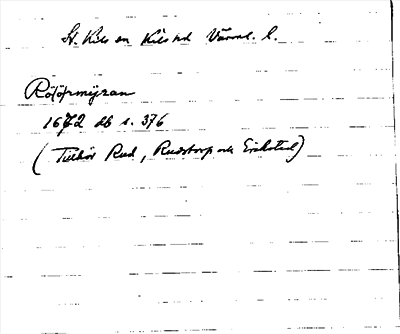 St. Kils sn Kils hd Värml. l.
Rö(ö)rmÿran
1672 db s. 376
(Tillhör Rud, Rudstorp och Erikstad)